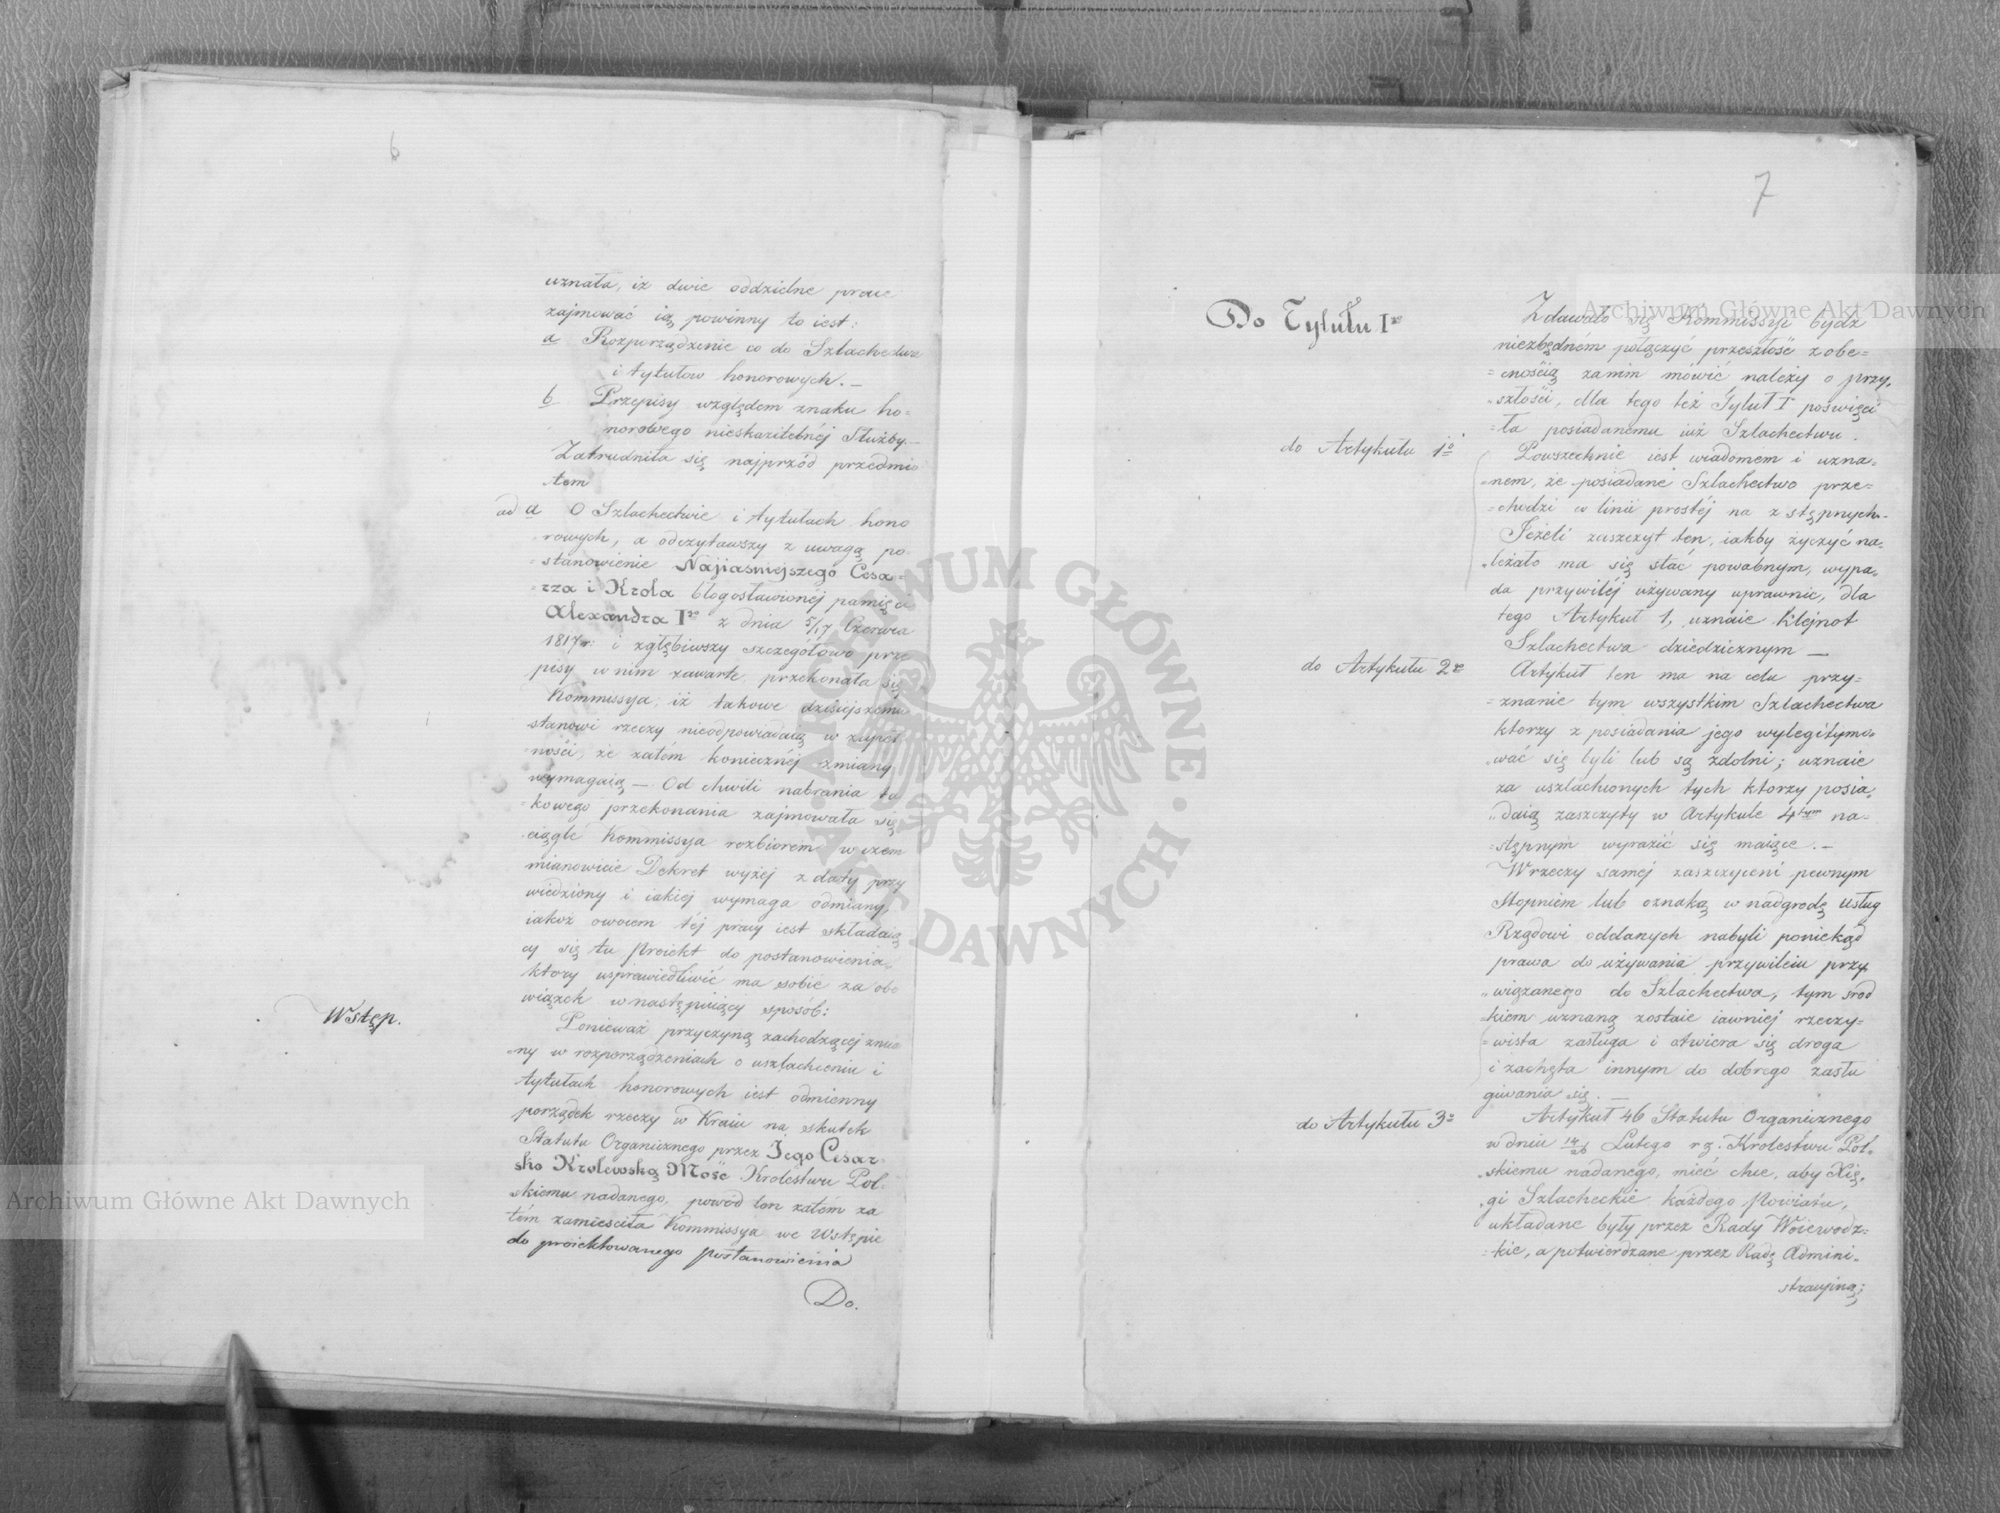 6
uznała, iż dwie oddzielne prace
zajmować ią powinny to iest:
a Rozporządzenie co do Szlachectwa
i tytułow honorowych. —
b Przepisy względem znaku ho=
norowego nieskazitelnéj Służby.—
Zatrudniła się najprzód przedmio
tem
ad a O Szlachectwie i tytułach hono
rowych, a odczytawszy z uwagą po=
=stanowienie Najiasniejszego Cesa=
=rza i Krola błogosławionéj pamięci
Alexandra Igo z dnia 5/17 Czerwca
1817 r: i zgłębiwszy szczegółowo prze
pisy w nim zawarte, przekonała się
Kommissya, iż takowe dzisiejszemu
stanowi rzeczy nieodpowiadaią w zupeł
ności, że zatém koniecznéj zmiany
wymagaią — Od chwili nabrania ta
=kowego przekonania zajmowała się
ciągle Kommissya rozbiorem w czem
mianowicie Dekret wyżej z daty przy
wiedziony i iakiej wymaga odmiany,
iakoż owocem téj pracy iest składaią
cy się tu Proiekt do postanowienia,
ktory usprawiedliwić ma sobie za obo
wiązek w następuiący sposób:
Wstęp.
Ponieważ przyczyną zachodzącéj zmia
=ny w rozporządzeniach o uszlachceniu i
tytułach honorowych iest odmienny
porządek rzeczy w Kraiu na skutek
Statutu Organicznego przez Jego Cesar=
sko Krolewską Mość Krolestwu Pol=
skiemu nadanego, powód ten zatém za
tém zamieściła Kommissya we Wstępie
do proiektowanego postanowienia
Do.
7
Do Tytułu Igo
Zdawało się Kommissyi bydź
niezbędnem połączyć przeszłość z obe=
=cnością zanim mówić należy o przy=
=szłości, dla tego też Tytuł I poświęci
=ła posiadanemu iuż Szlachectwu.
do Artykułu 1o
Powszechnie iest wiadomem i uzna=
=nem, że posiadane Szlachectwo prze=
=chodzi w linii prostéj na zstępnych.
Jeżeli zaszczyt ten, iakby życzyć na=
=leżało ma się stać powabnym, wypa=
da przywiléj używany uprawnić, dla
tego Artykuł 1, uznaie Klejnot
Szlachectwa dziedzicznym —
do Artykułu 2go
Artykuł ten ma na celu przy=
=znanie tym wszystkim Szlachectwa
ktorzy z posiadania jego wylegitymo=
wać się byli lub są zdolni; uznaie
za uszlachconych tych ktorzy posia=
daią zaszczyty w Artykule 4tym na=
=stępnym wyrazić się maiące. —
W rzeczy saméj zaszczyceni pewnym
Stopniem lub oznaką w nadgrodę usług
Rządowi oddanych nabyli poniekąd
prawa do używania przywileiu przy
wiązanego do Szlachectwa, tym środ
=kiem uznaną zostaie iawniej rzeczy=
=wista zasługa i otwiera się droga
i zachęta innym do dobrego zasłu
giwania się. —
do Artykułu 3o
Artykuł 46 Statutu Organicznego
w dniu 14/26 Lutego r.z. Krolestwu Pol=
=skiemu nadanego, mieć chce, aby Xię=
gi Szlacheckie każdego Powiatu,
układane były przez Rady Woiewodz=
=kie, a potwierdzane przez Radę Admini=
stracyiną;
Archiwum Główne Akt Dawnych
Archiwum Główne Akt Dawnych
ARCHIWUM GŁÓWNE · AKT DAWNYCH ·